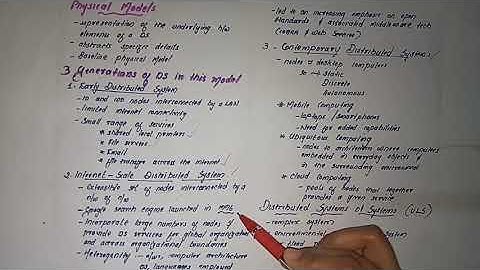 Physical Models
- representation of the underlying h/w
elements of a DS
- abstracts specific details
- Baseline physical model
3 Generations of DS in this model
1. Early Distributed System
- 10 and 100 nodes interconnected by a LAN
- limited internet connectivity
- Small range of services
* shared local printers
* file servers
* Email
* file transfer across the internet
2. Internet-Scale Distributed System
- Extensible set of nodes interconnected by a
n/w of n/w
- Google search engine launched in 1996
- Incorporate large numbers of nodes &
provide DS services for global organization
and across organizational boundaries
- Heterogeneity - n/ws, computer architecture
OS, languages employed
- led to an increasing emphasis on open
standards & associated middleware tech
(CORBA & Web Service)
3 - Contemporary Distributed Systems
- nodes → desktop computers
So → Static
Discrete
Autonomous
* Mobile Computing
- laptops / smartphones
- Need for added capabilities
* Ubiquitous Computing
- nodes to architecture where computers
embedded in everyday objects &
in the surrounding environment
* Cloud Computing
- pools of nodes that together
provides a given service
Distributed Systems of Systems (ULS)
- complex system
- environmental
- flood